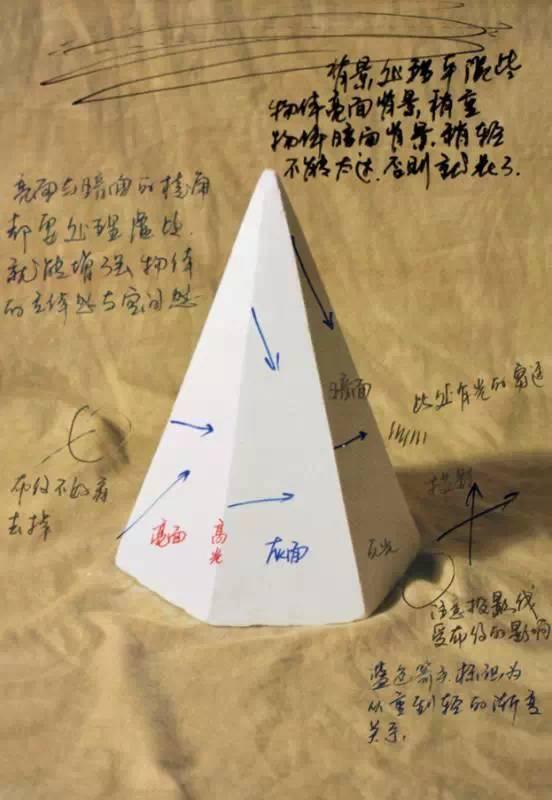 背景处理平隐些
物体亮面背景,稍重
物体暗面背景,稍轻
不能太过,否则就花了.
亮面与暗面的棱角
都要处理虚些.
就能增强物体
的立体感与空间感
暗面
此处有光的穿透
布纹不好看
去掉
投影
亮面
高光
灰面
反光
注意投影线
受布纹的影响
蓝色箭头标识为
从重到轻的渐变
关系.